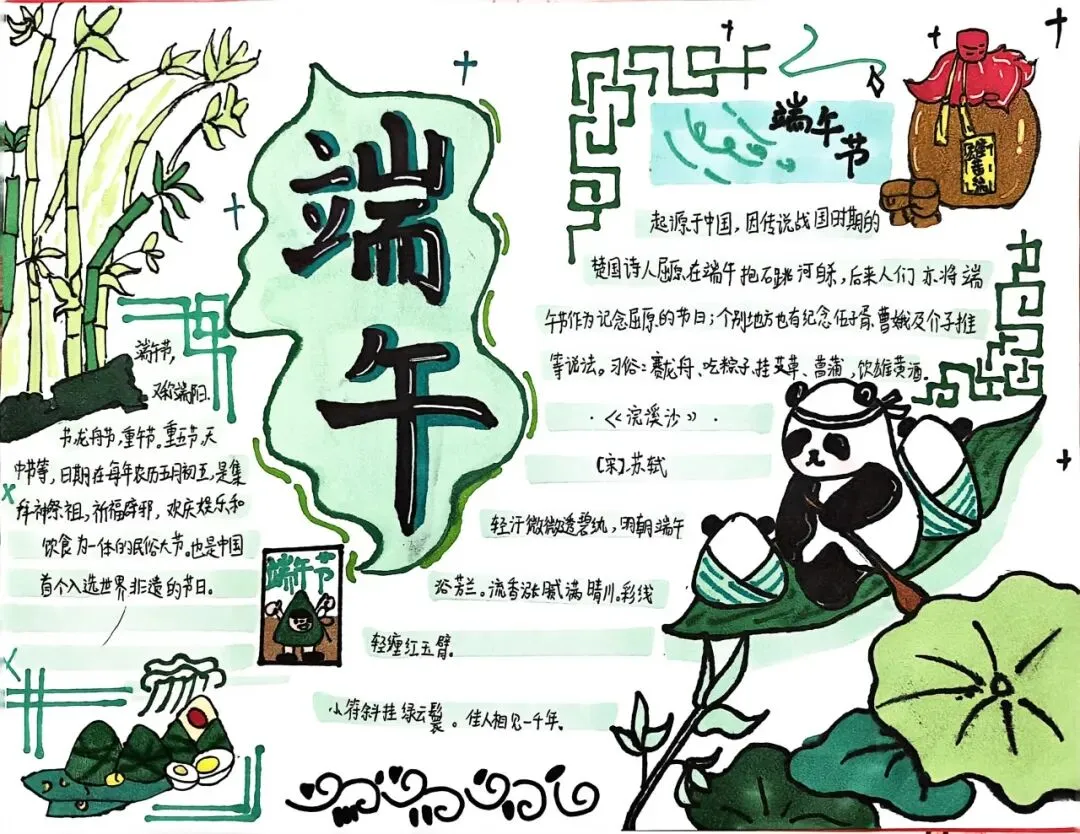 端午
端午节
起源于中国，因传说战国时期的
楚国诗人屈原在端午抱石跳河自杀，后来人们亦将端
午节作为记念屈原的节日；个别地方也有纪念伍子胥、曹娥及介子推
等说法。习俗：赛龙舟、吃粽子、挂艾草、菖蒲，饮雄黄酒。
·《浣溪沙》·
〔宋〕苏轼
轻汗微微透碧纨，明朝端午
浴芳兰。流香涨腻满晴川。彩线
轻缠红玉臂。
小符斜挂绿云鬟。佳人相见一千年。
端午节，
又称端阳
节、龙舟节，重午节。重五节，天
中节等，日期在每年农历五月初五，是集
拜神祭祖，祈福辟邪，欢庆娱乐和
饮食为一体的民俗大节。也是中国
首个入选世界非遗的节日。
端午节
雄黄酒